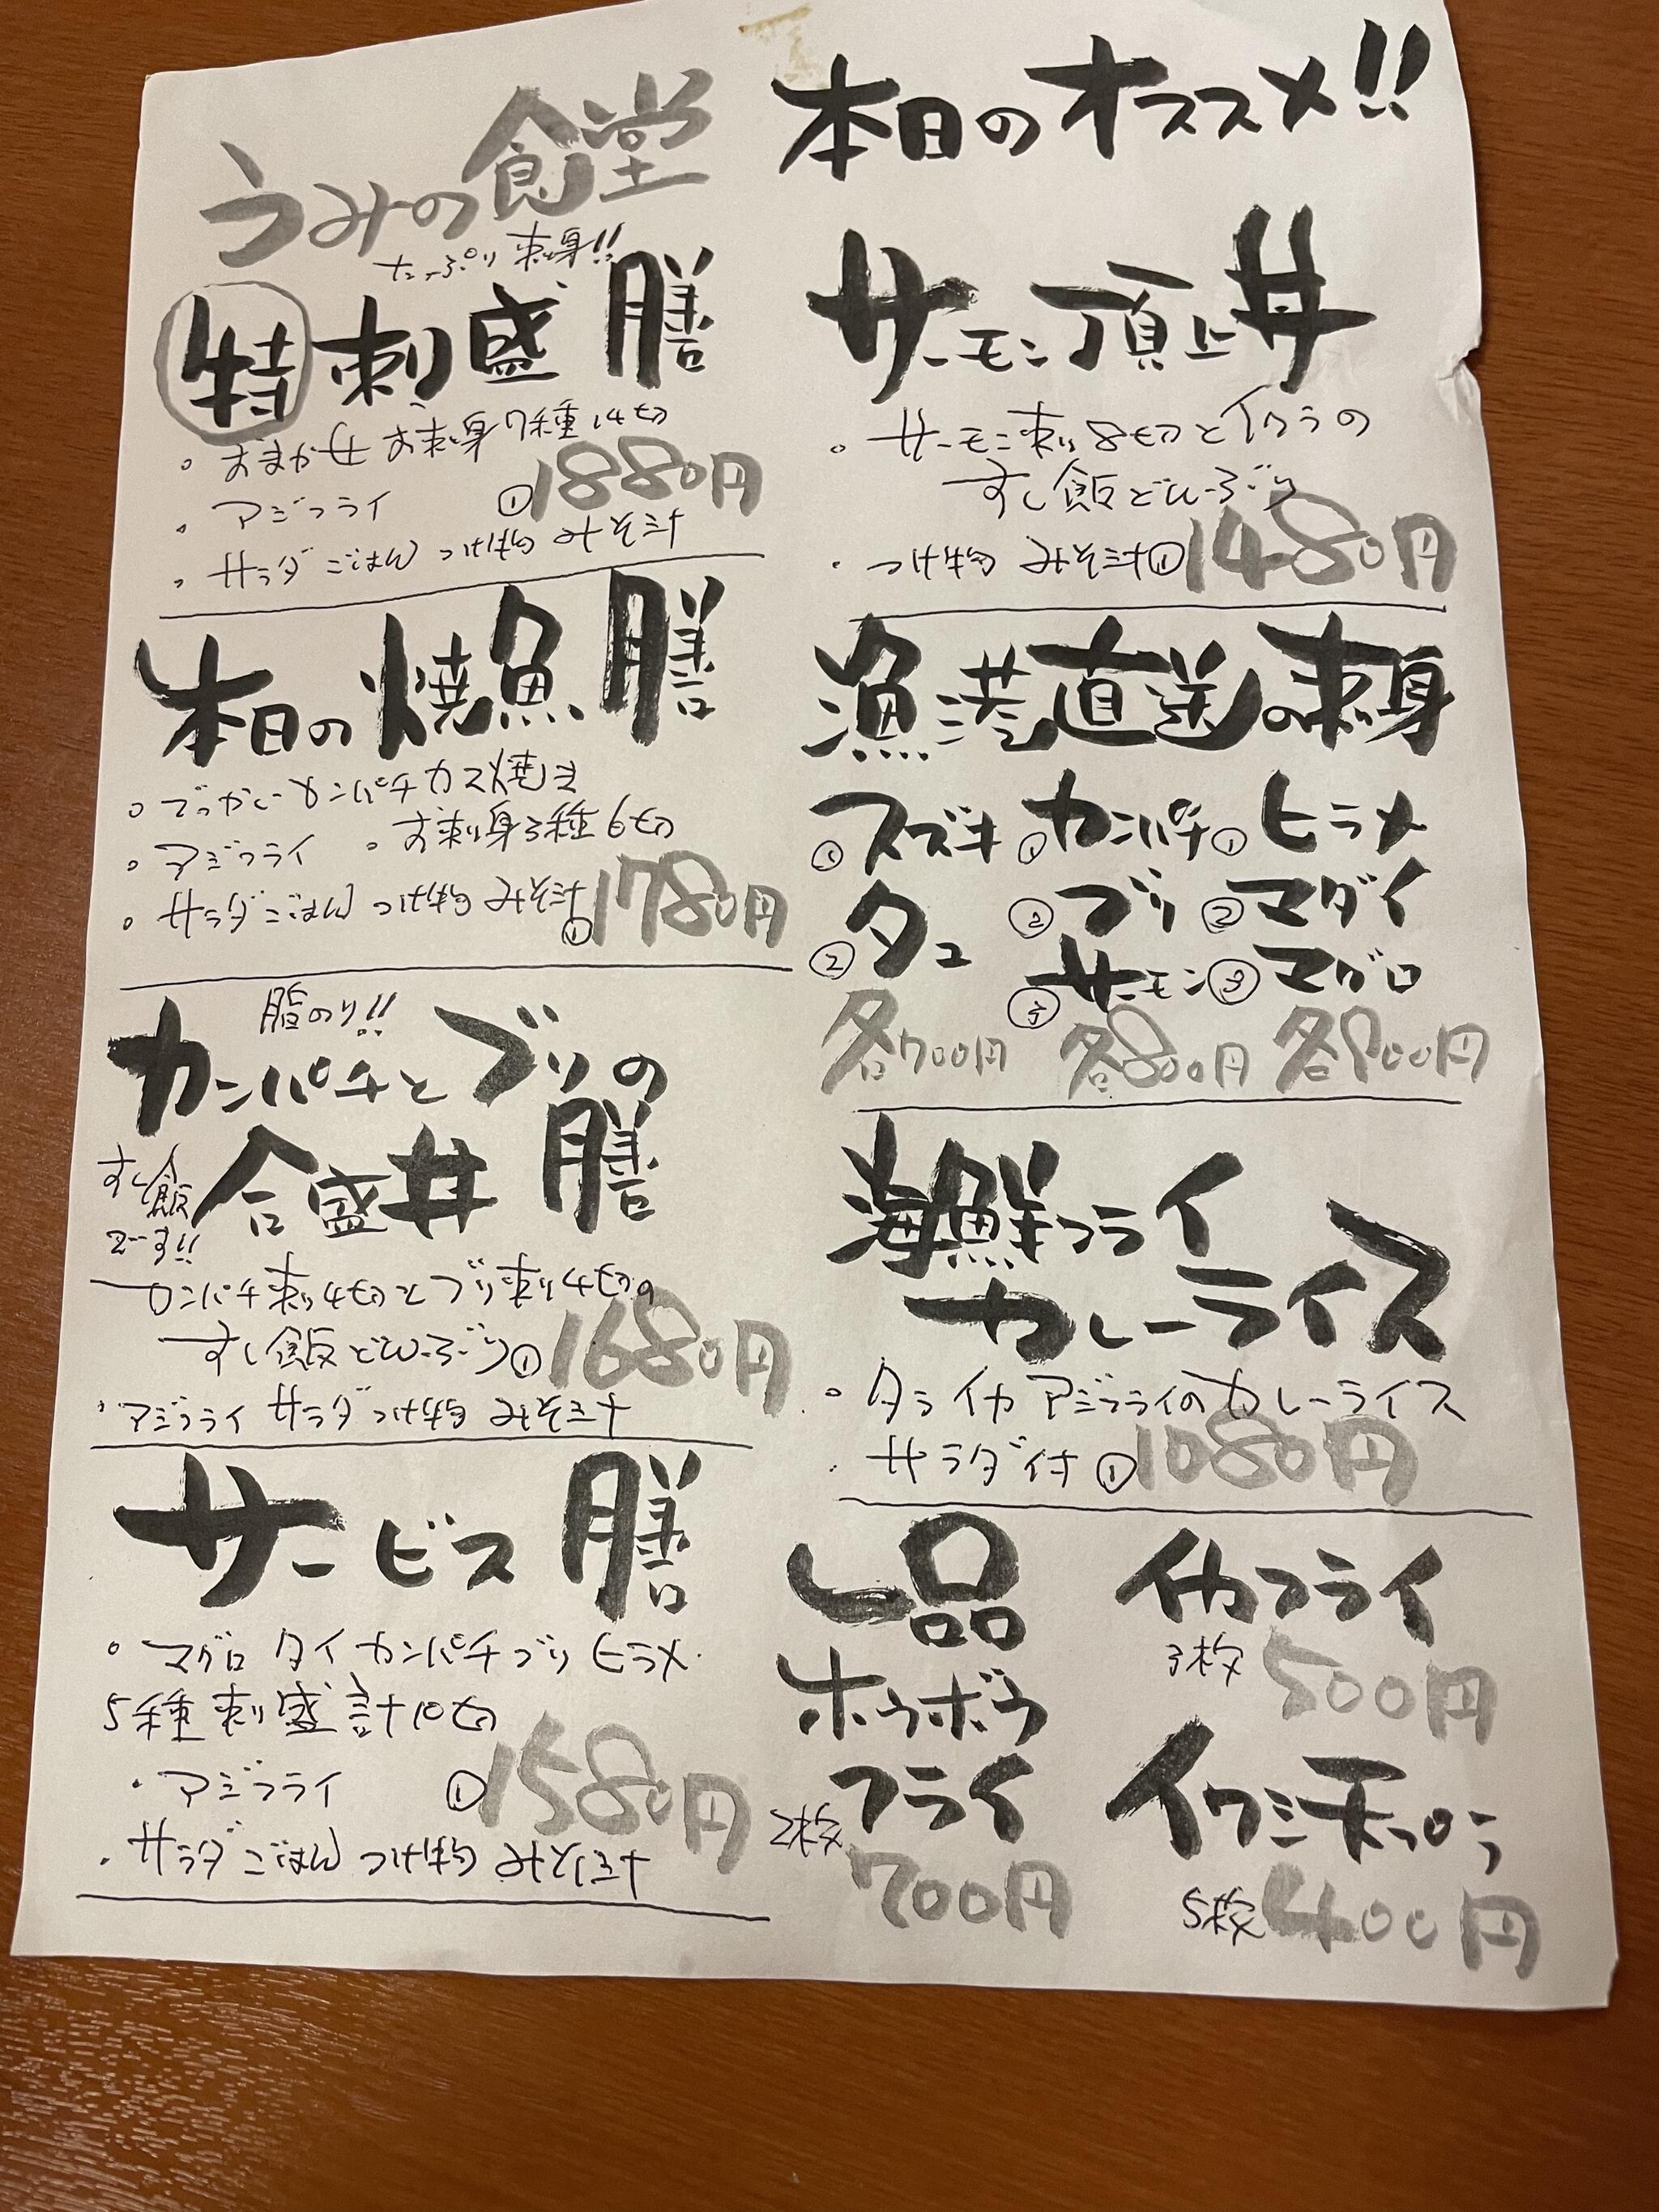 本日のオススメ!!
うみの食堂
たっぷり刺身!!
特刺盛膳
。おまかせお刺身7種14切
・アジフライ ①1880円
・サラダごはんつけ物みそ汁
本日の焼魚膳
。でっかいカンパチカマ焼き
。アジフライ 。お刺身3種6切
。サラダごはんつけ物みそ汁①1780円
脂のり!!
カンパチとブリの
すし飯でーす!!
合盛丼膳
カンパチ刺4切とブリ刺4切の
すし飯どんぶり①1680円
・アジフライ サラダ つけ物 みそ汁
サービス膳
。マグロ タイ カンパチ ブリ ヒラメ
5種刺盛計10切
・アジフライ ①1580円
・サラダごはんつけ物みそ汁
サーモン頂上丼
。サーモン刺8切とイクラの
すし飯どんぶり
・つけ物 みそ汁①1480円
漁港直送の刺身
①スズキ ①カンパチ ①ヒラメ
②タコ ②ブリ ②マダイ
サーモン ③マグロ
各700円 各800円 各900円
海鮮フライ
カレーライス
。タラ イカ アジフライのカレーライス
・サラダ付①1080円
一品
ホウボウ
フライ
2枚
700円
イカフライ
3枚 500円
イワシ天ぷら
5枚 400円